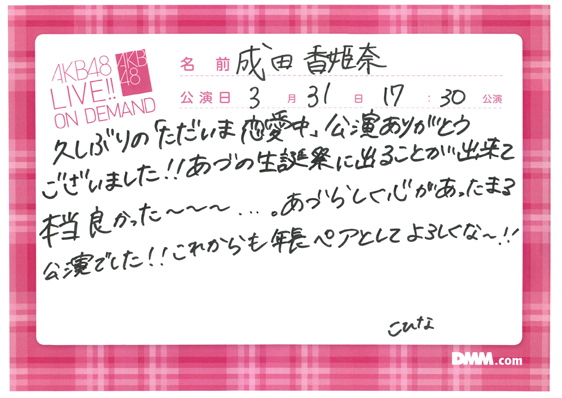 AKB48
LIVE!!
ON DEMAND
AKB
48
名 前 成田 香姫奈
公演日 3 月 31 日 17 : 30 公演
久しぶりの「ただいま 恋愛中」公演ありがとう
ございました!!あづの生誕祭に出ることが出来て
本当良かった〜〜〜….。あづらしく心があったまる
公演でした!!これからも年長ペアとしてよろしくな〜!!
こひな
DMM.com